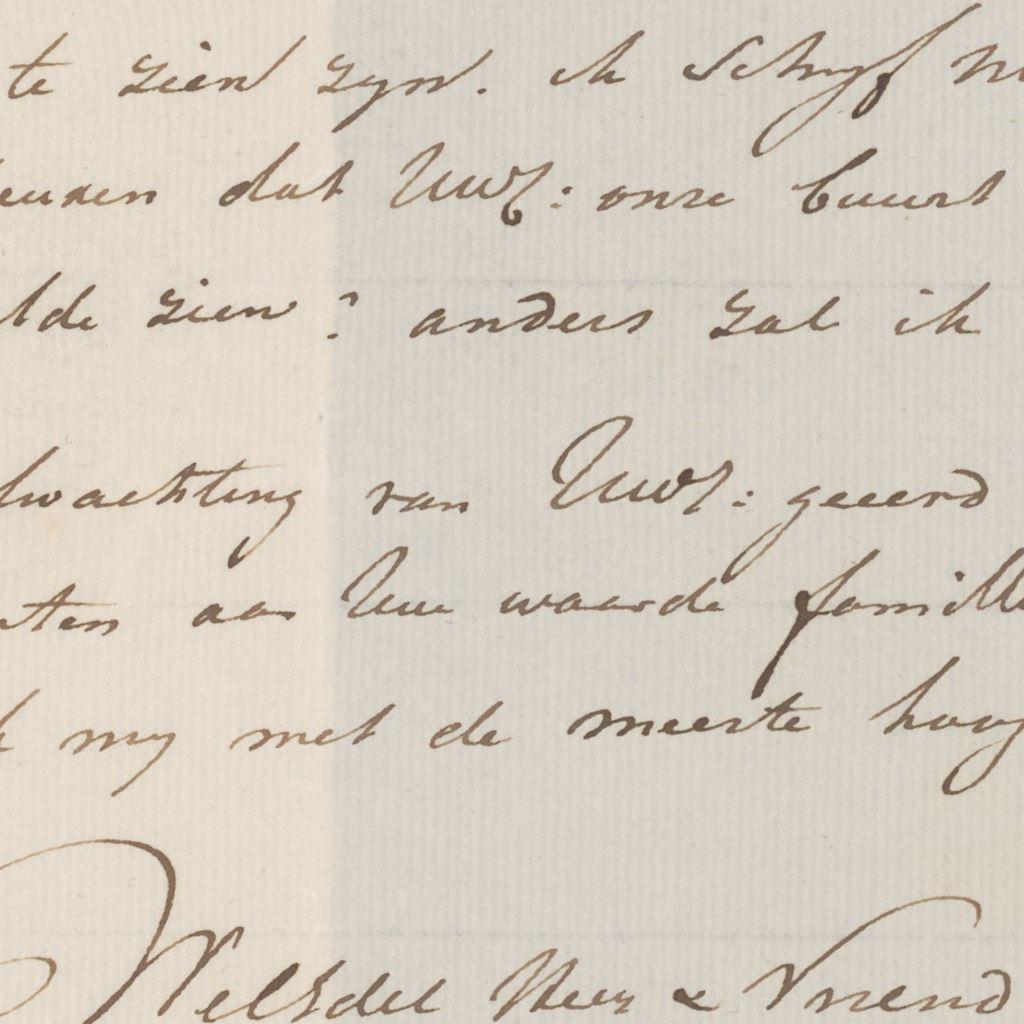 te zien zyn. ik schryf n
euren dat UwE: onze buurt
lde zien? anders zal ik
wachting van UwE: geeerd
nten aan Uwe waarde famille
k my met de meeste hoog
WelEdel Heer & Vriend